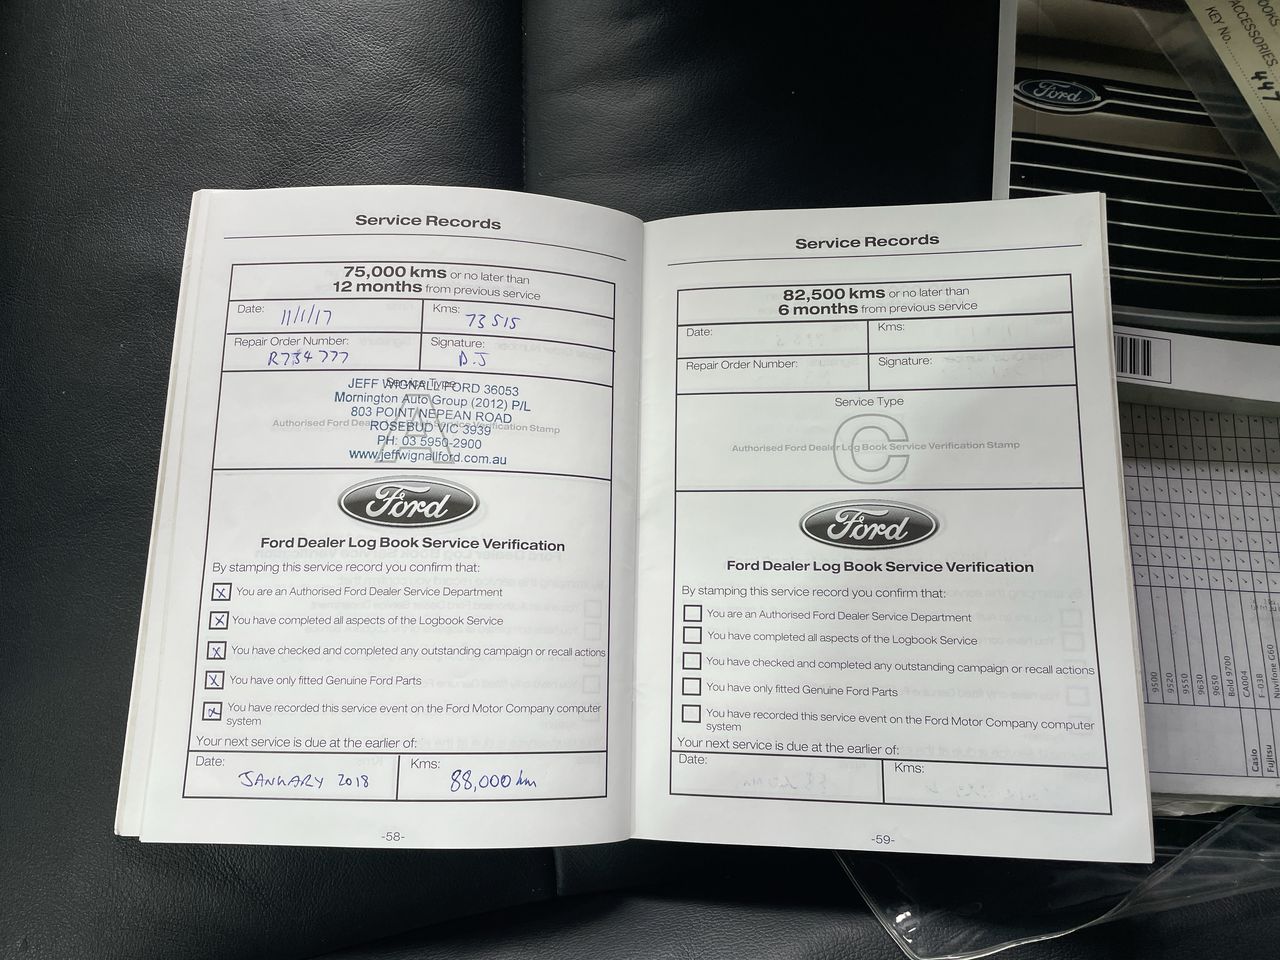 Service Records
75,000 kms or no later than
12 months from previous service
Date: 11/1/17
Kms: 73515
Repair Order Number: R734777
Signature: D.J
Service Type
A
Authorised Ford Dealer Log Book Service Verification Stamp
JEFF WIGNALL FORD 36053
Mornington Auto Group (2012) P/L
803 POINT NEPEAN ROAD
ROSEBUD VIC 3939
PH: 03 5950-2900
www.jeffwignallford.com.au
Ford
Ford Dealer Log Book Service Verification
By stamping this service record you confirm that:
X You are an Authorised Ford Dealer Service Department
X You have completed all aspects of the Logbook Service
X You have checked and completed any outstanding campaign or recall actions
X You have only fitted Genuine Ford Parts
X You have recorded this service event on the Ford Motor Company computer
system
Your next service is due at the earlier of:
Date: JANUARY 2018
Kms: 88,000 km
-58-
Service Records
82,500 kms or no later than
6 months from previous service
Date:
Kms:
Repair Order Number:
Signature:
Service Type
C
Authorised Ford Dealer Log Book Service Verification Stamp
Ford
Ford Dealer Log Book Service Verification
By stamping this service record you confirm that:
You are an Authorised Ford Dealer Service Department
You have completed all aspects of the Logbook Service
You have checked and completed any outstanding campaign or recall actions
You have only fitted Genuine Ford Parts
You have recorded this service event on the Ford Motor Company computer
system
Your next service is due at the earlier of:
Date:
Kms:
-59-
Ford
ACCESSORIES
KEY No.
447
9500
9520
9550
9630
9650
Bold 9700
CA004
F-03B
Nuvifone G60
Casio
Fujitsu